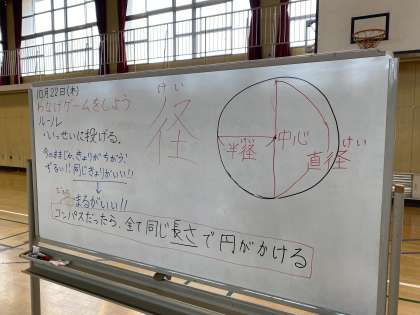 10月22日(木)
わなげゲームをしよう
ルール
・いっせいに投げる。
今のままじゃ、きょりがちがう。
ずるい!!同じきょりがいい!!
↓
まるがいい!!
コンパスだったら、全て同じ長さで円がかける
けい
径
中心
半径
直径
けい